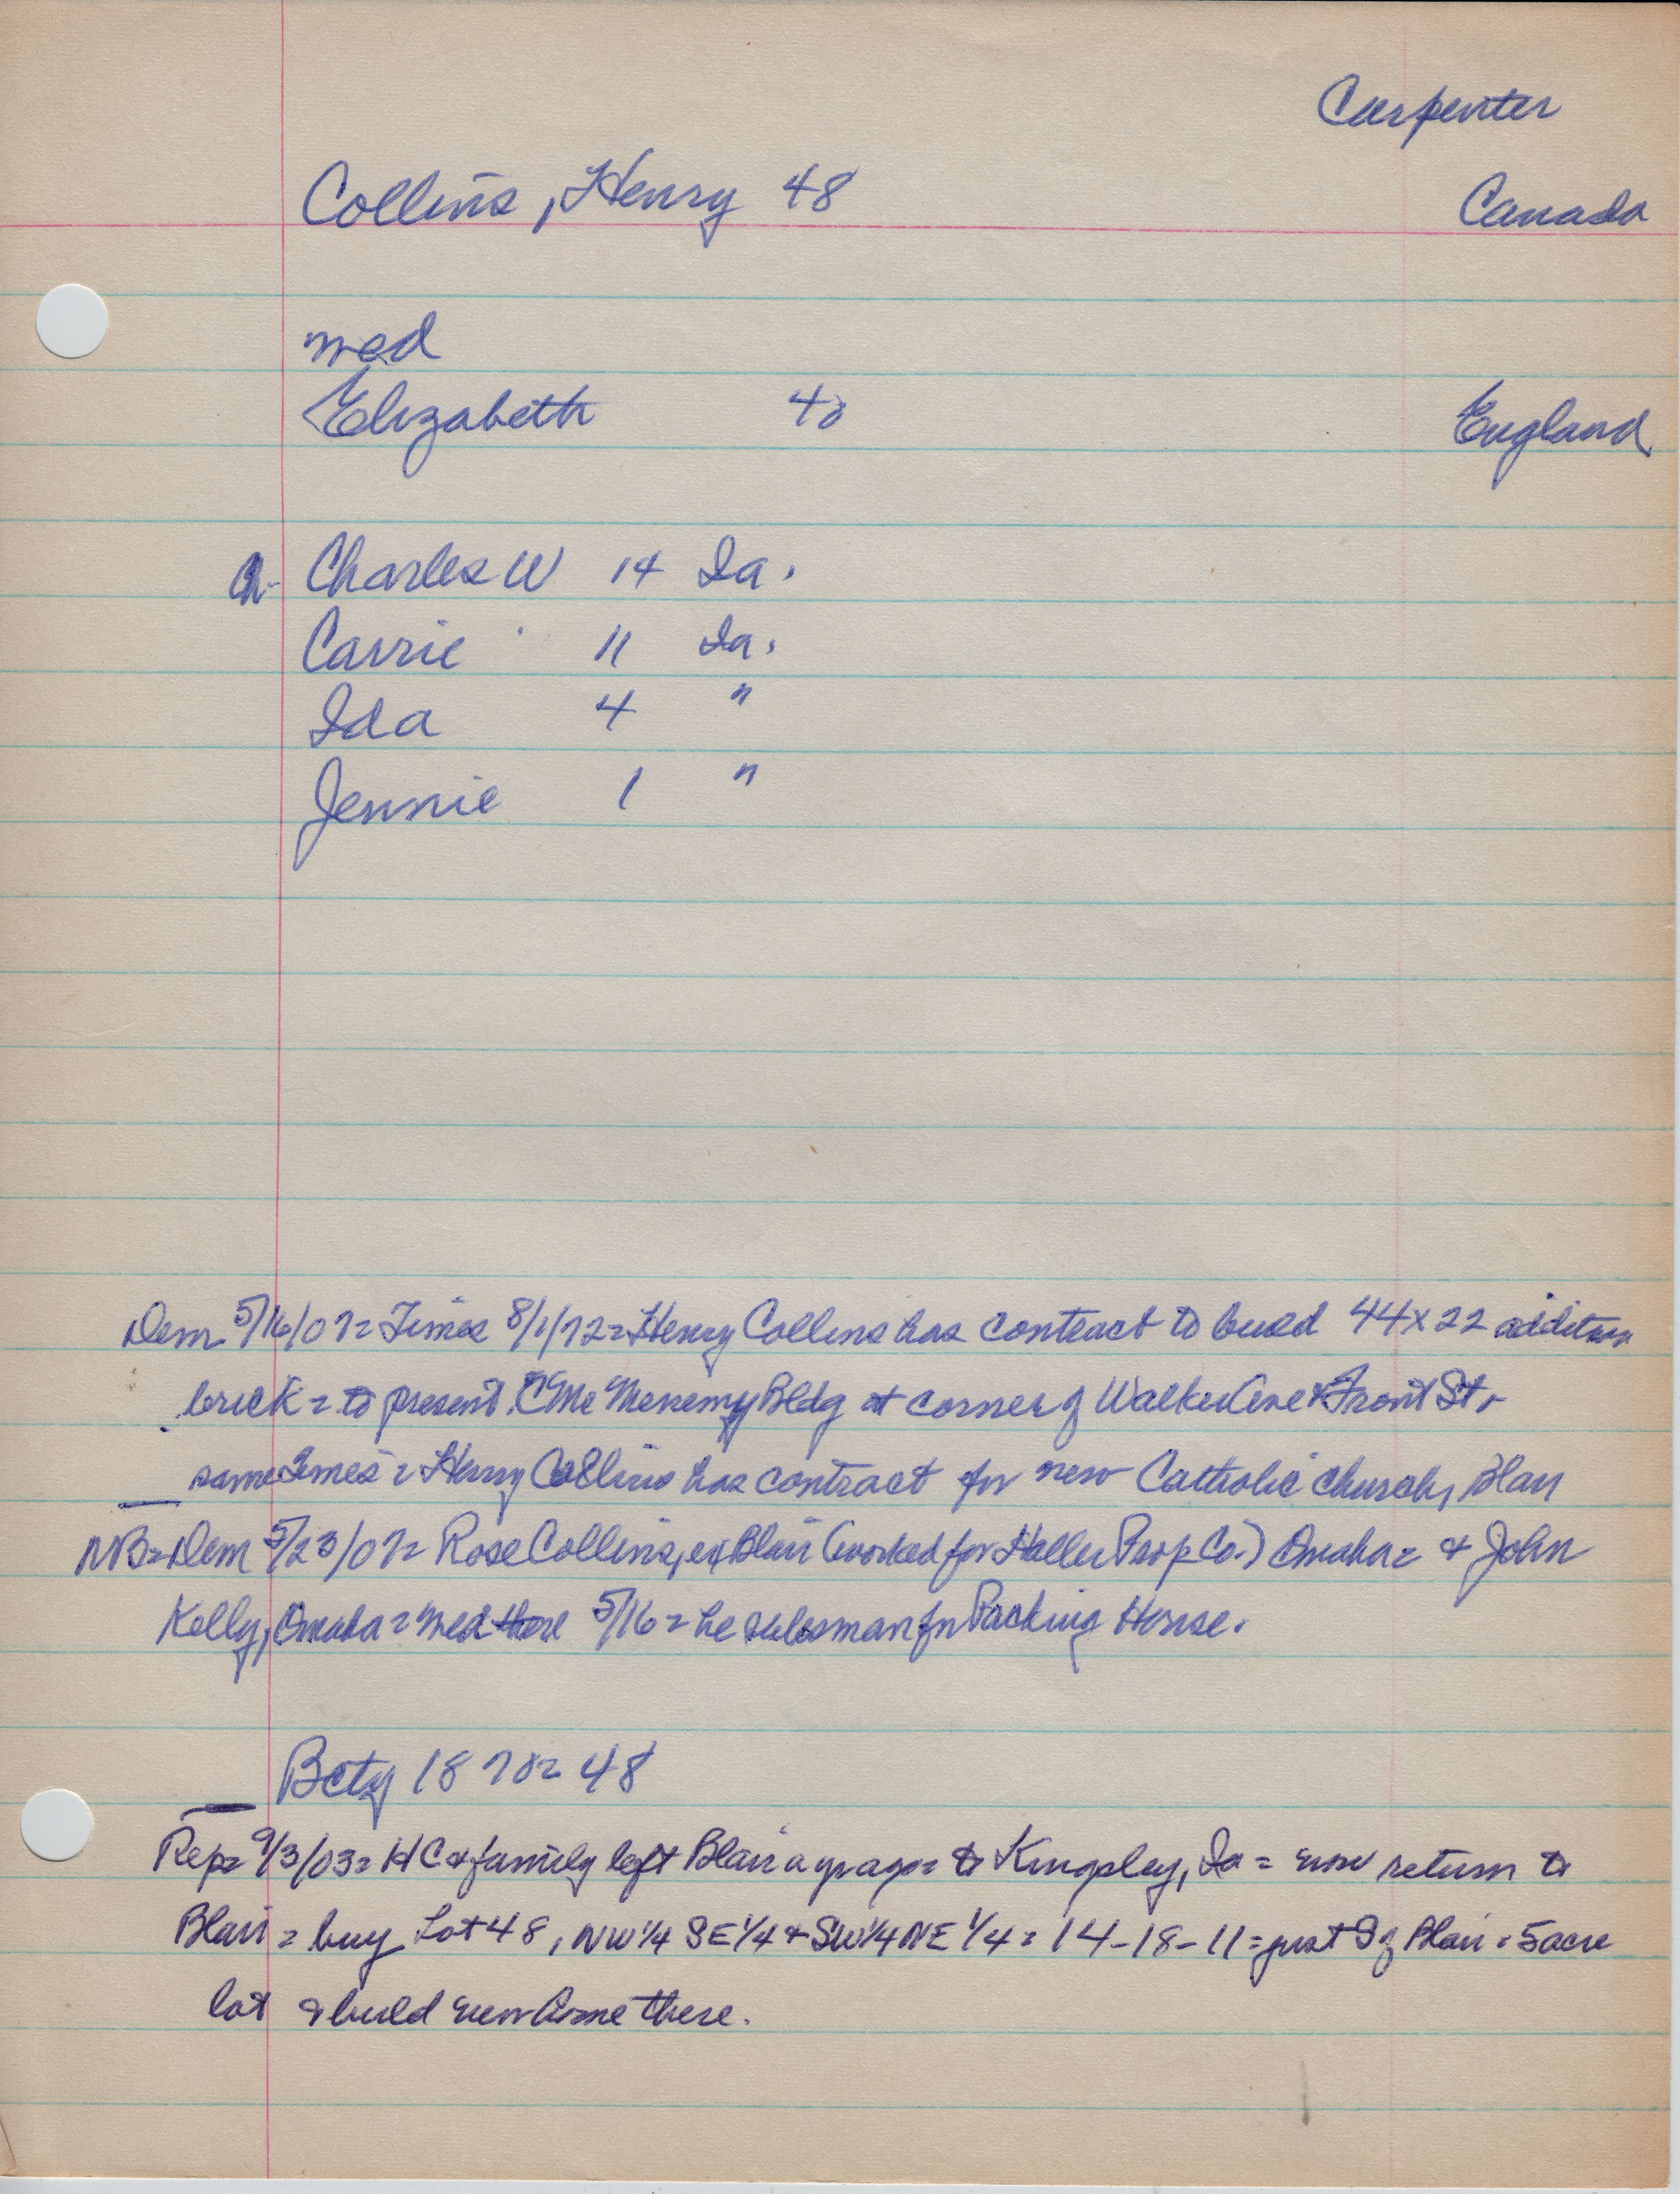 Carpenter
Collins, Henry 48 Canada
med
Elizabeth 40 England
Ch- Charles W 14 Ia.
Carrie 11 Ia.
Ida 4 "
Jennie 1 "
Dem 5/16/07= Times 8/1/72= Henry Collins has contract to build 44x22 addition
brick = to present McMenemy Bldg at corner of Walker Ave & Front St.
same Times = Henry Collins has contract for new Catholic Church, Blair
NB= Dem 5/23/07= Rose Collins, ex Blair (worked for Haller Prop Co.) Omaha = & John
Kelly, Omaha = med there 5/16 = he salesman for Packing House.
Bcty 1870= 48
Rep= 9/3/03= HC & family left Blair a yr ago = to Kingsley, Ia = now return to
Blair = buy Lot 48, NW 1/4 SE 1/4 + SW 1/4 NE 1/4 = 14-18-11 = just S of Blair = 5 acre
lot & build new home there.